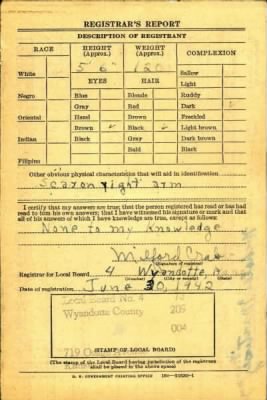 REGISTRAR'S REPORT
DESCRIPTION OF REGISTRANT
RACE HEIGHT (Approx.) WEIGHT (Approx.) COMPLEXION
White 5 6 120 Sallow
EYES HAIR Light
Negro Blue Blonde Ruddy
Gray Red Dark ✓
Oriental Hazel Brown Freckled
Brown ✓ Black ✓ Light brown
Indian Black Gray Dark brown
Bald Black
Filipino
Other obvious physical characteristics that will aid in identification
Scar on right arm
I certify that my answers are true; that the person registered has read or has had
read to him his own answers; that I have witnessed his signature or mark and that
all of his answers of which I have knowledge are true, except as follows:
None to my knowledge
Milford
(Signature of registrar)
Registrar for Local Board 4 Wyandotte,
Date of registration June 30, 1942
Local Board No. 4 73
Wyandotte County 209
004
719
(STAMP OF LOCAL BOARD)
(The stamp of the Local Board having jurisdiction of the registrant
shall be placed in the above space)
U. S. GOVERNMENT PRINTING OFFICE